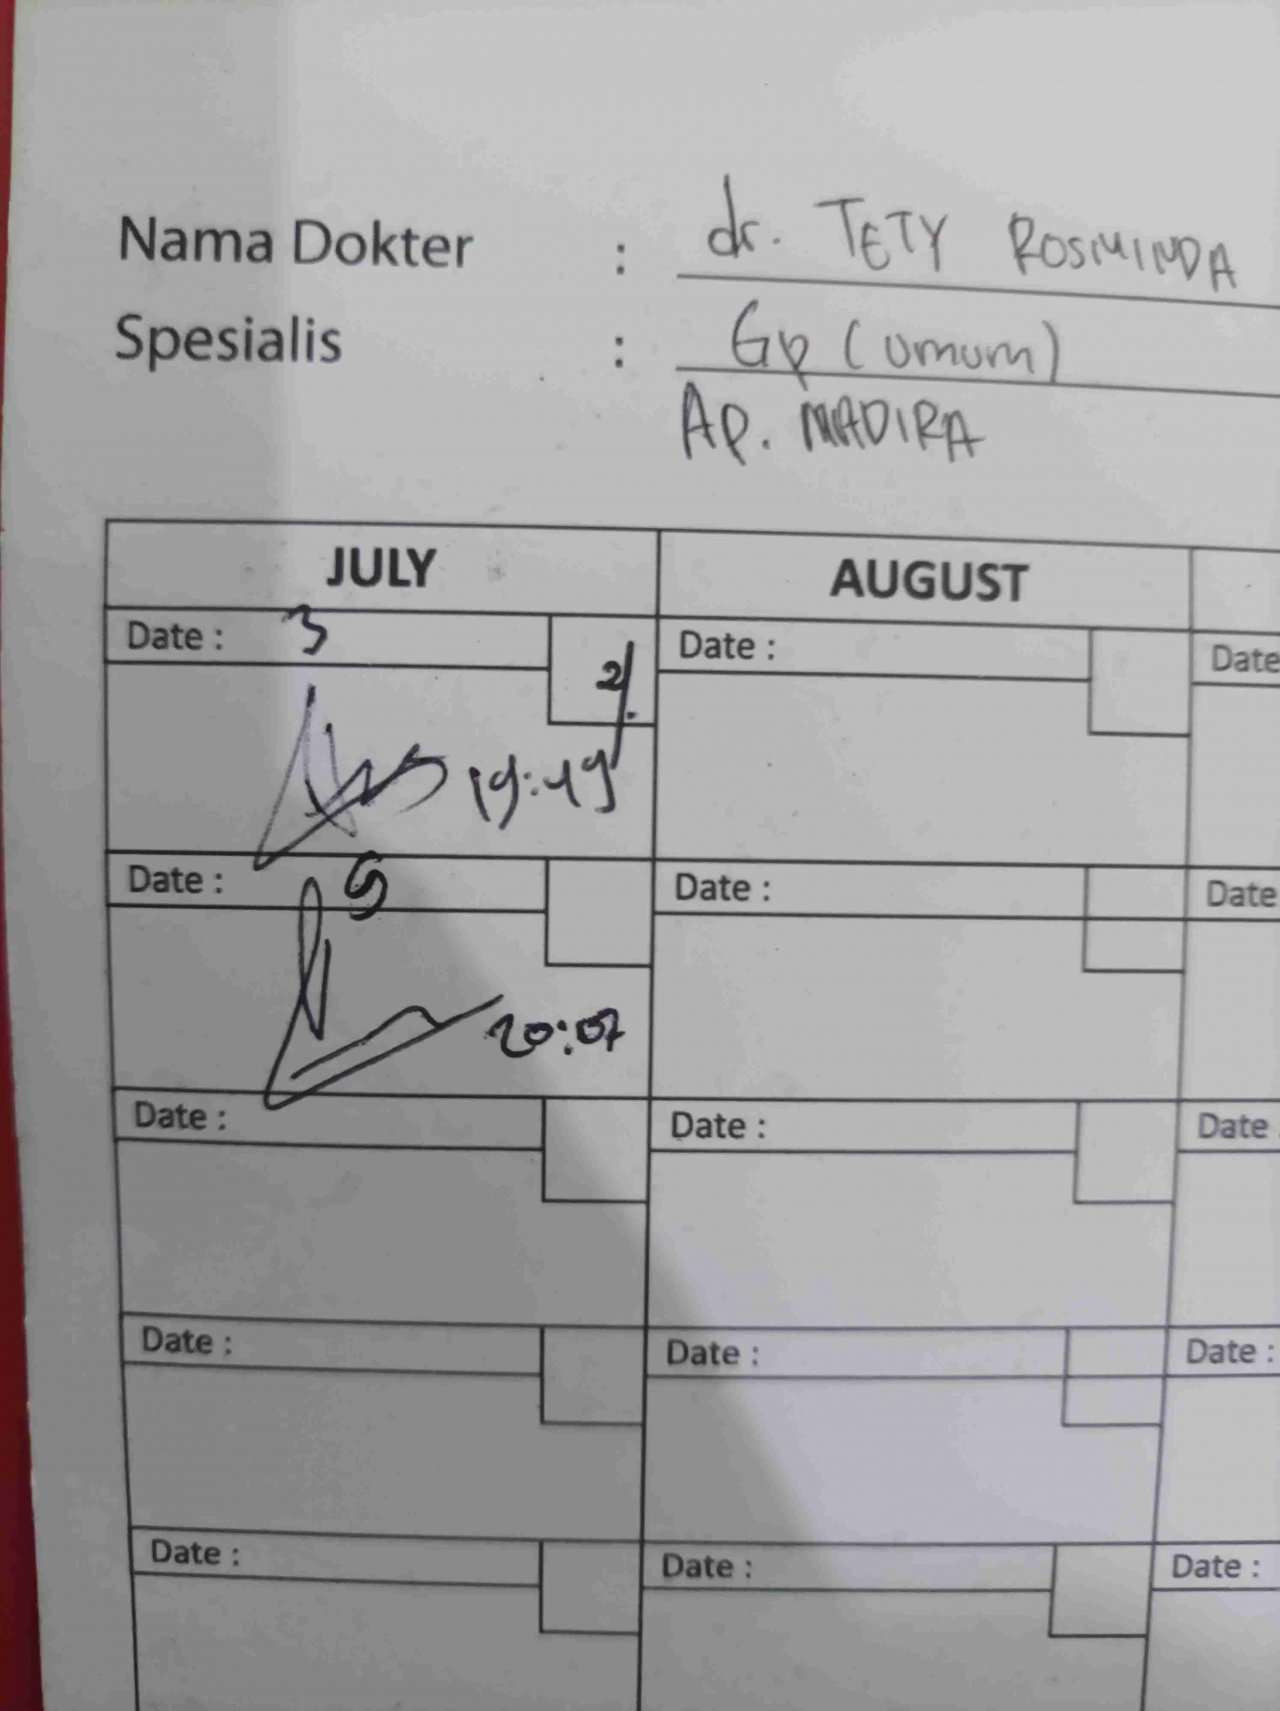 Nama Dokter : dr. TETY ROSMINDA
Spesialis : Gp (umum)
Ap. MADIRA
JULY AUGUST
Date : 3 Date : Date
2
19:49
Date : Date : Date
20:07
Date : Date : Date
Date : Date : Date :
Date : Date : Date :